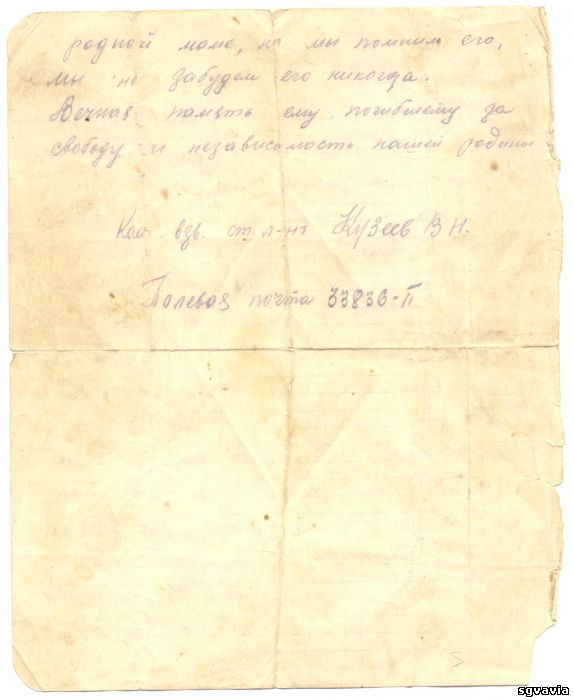 родной маме, но мы помним его,
мы не забудем его никогда.
Вечная память ему, погибшему за
свободу и независимость нашей родины
Ком. взв. ст. л-нт Кузеев В Н.
Полевая почта 33836-П
sgvavia